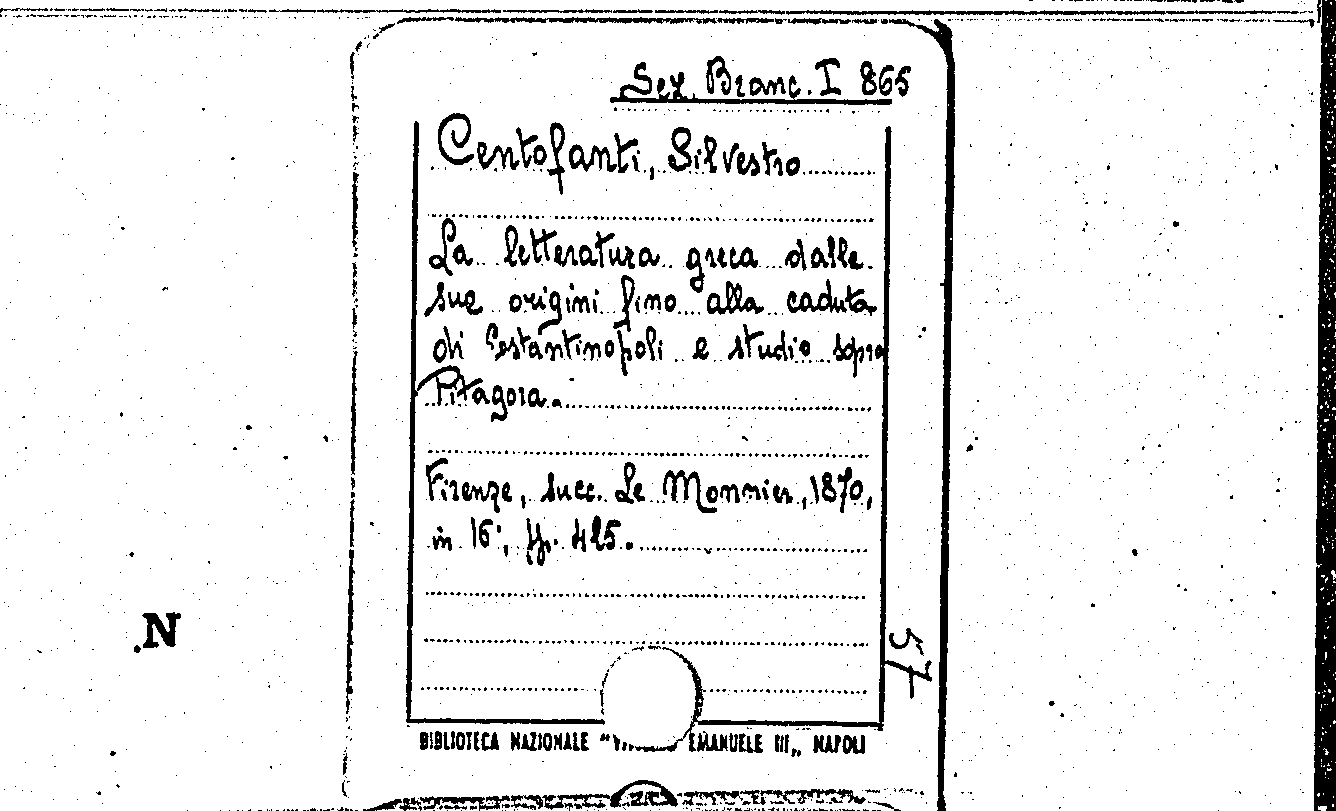 Sez. Branc. I 865
Centofanti, Silvestro
La letteratura greca dalle
sue origini fino alla caduta
di Costantinopoli e studio sopra
Pitagora.
Firenze, succ. Le Monnier, 1870,
in 16°, pp. 425.
N
57
BIBLIOTECA NAZIONALE " EMANUELE III„ NAPOLI